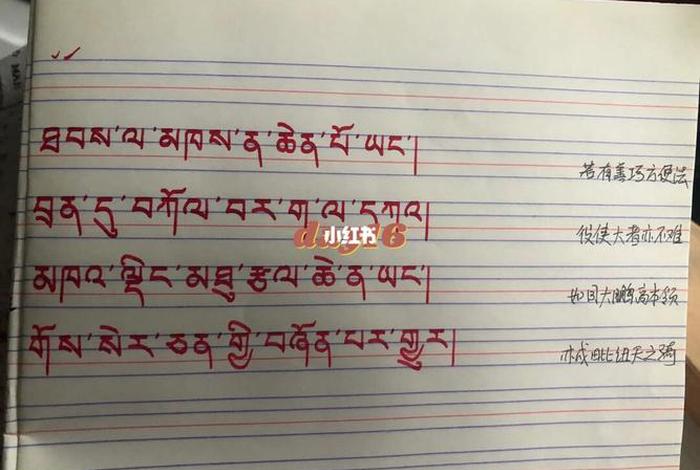 ཐབས་ལ་མཁས་ན་ཆེན་པོ་ཡང་།
若有善巧方便法
བྲན་དུ་བཀོལ་བར་ག་ལ་དཀའ།
役使大者亦不难
day16
小红书
མཁའ་ལྡིང་མཐུ་རྩལ་ཆེ་ན་ཡང་།
如同大鹏高本领
གོས་སེར་ཅན་གྱི་བཞོན་པར་གྱུར།
亦成毗纽天之骑